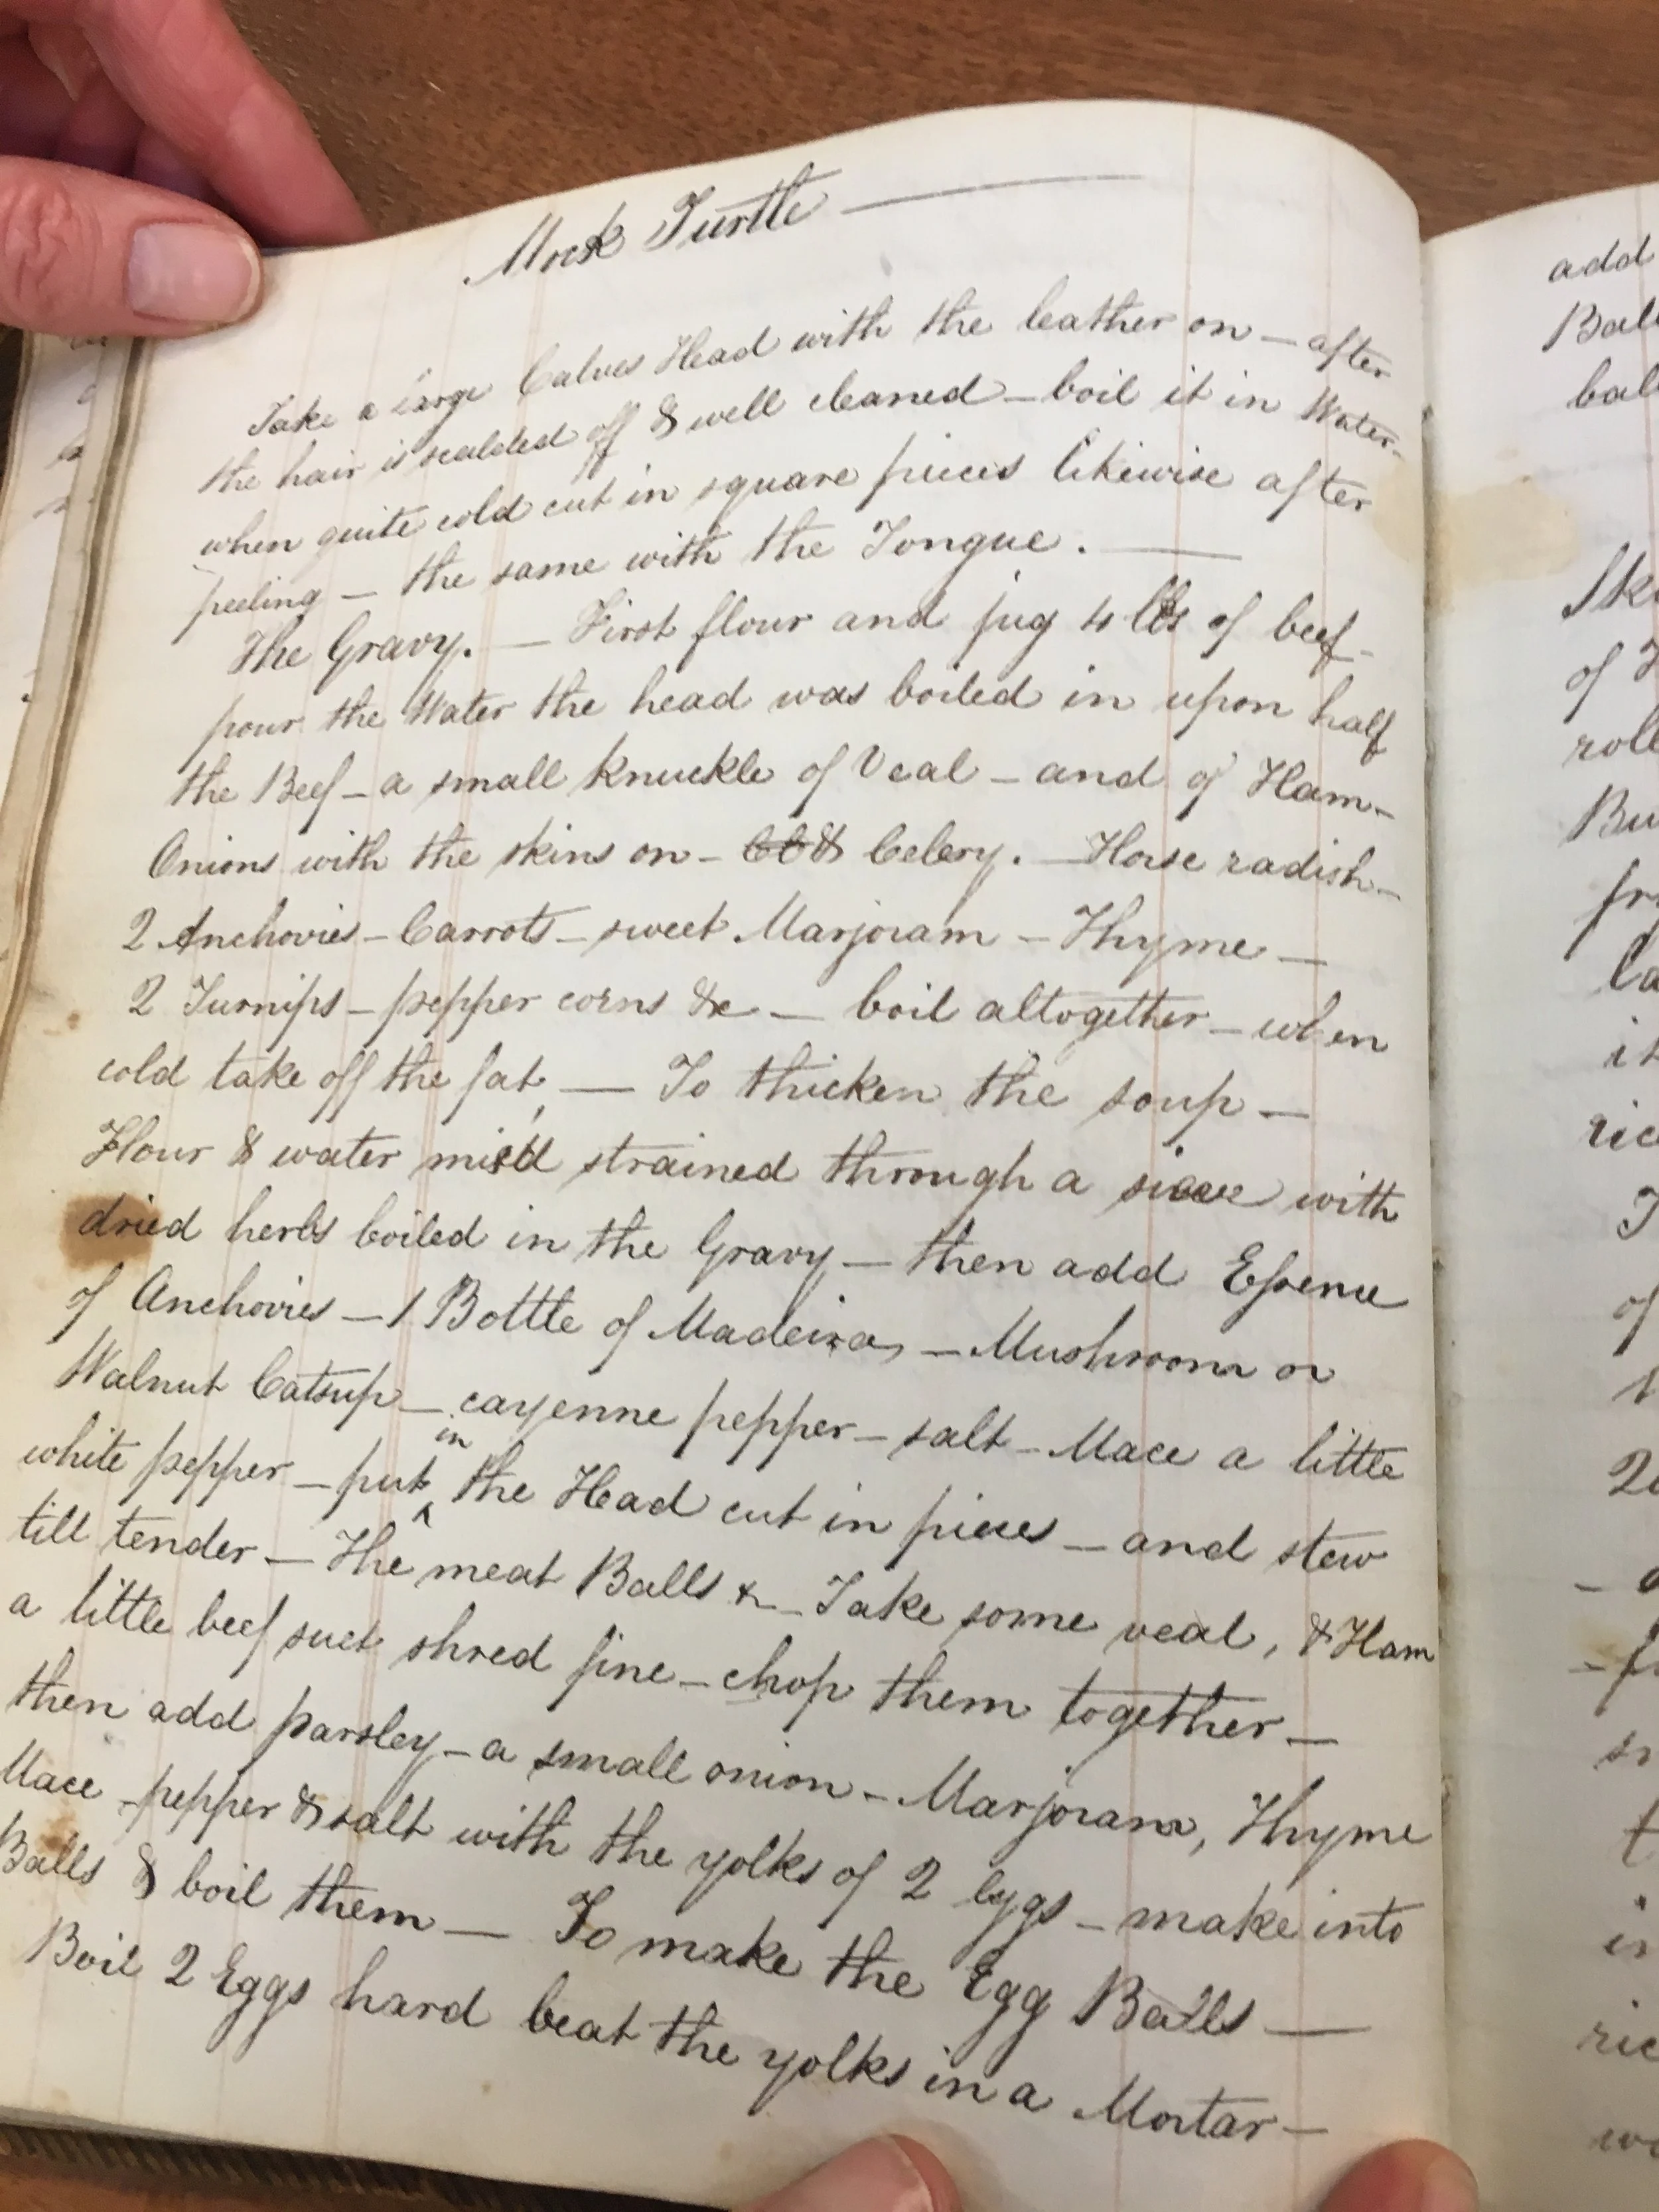 Mock Turtle —
Take a large Calves Head with the leather on — after
the hair is scalded off & well cleaned — boil it in Water —
when quite cold cut in square pieces likewise after
peeling — the same with the Tongue. —
The Gravy. — First flour and jug 4 lbs of beef —
pour the Water the head was boiled in upon half
the Beef — a small knuckle of Veal — and of Ham —
Onions with the skins on — & Celery. — Horse radish —
2 Anchovies — Carrots — sweet Marjoram — Thyme —
2 Turnips — pepper corns &c — boil altogether — when
cold take off the fat, — To thicken the soup —
Flour & water mix'd strained through a sieve with
dried herbs boiled in the Gravy — then add Essence
of Anchovies — 1 Bottle of Madeira, — Mushroom or
Walnut Catsup — cayenne pepper — salt — Mace a little
white pepper — put in the Head cut in pieces — and stew
till tender — The meat Balls &c — Take some veal, & Ham
a little beef suet shred fine — chop them together —
then add parsley — a small onion — Marjoram, Thyme
Mace — pepper & salt with the yolks of 2 eggs — make into
Balls & boil them — To make the Egg Balls —
Boil 2 Eggs hard beat the yolks in a Mortar —
add
of
it
of